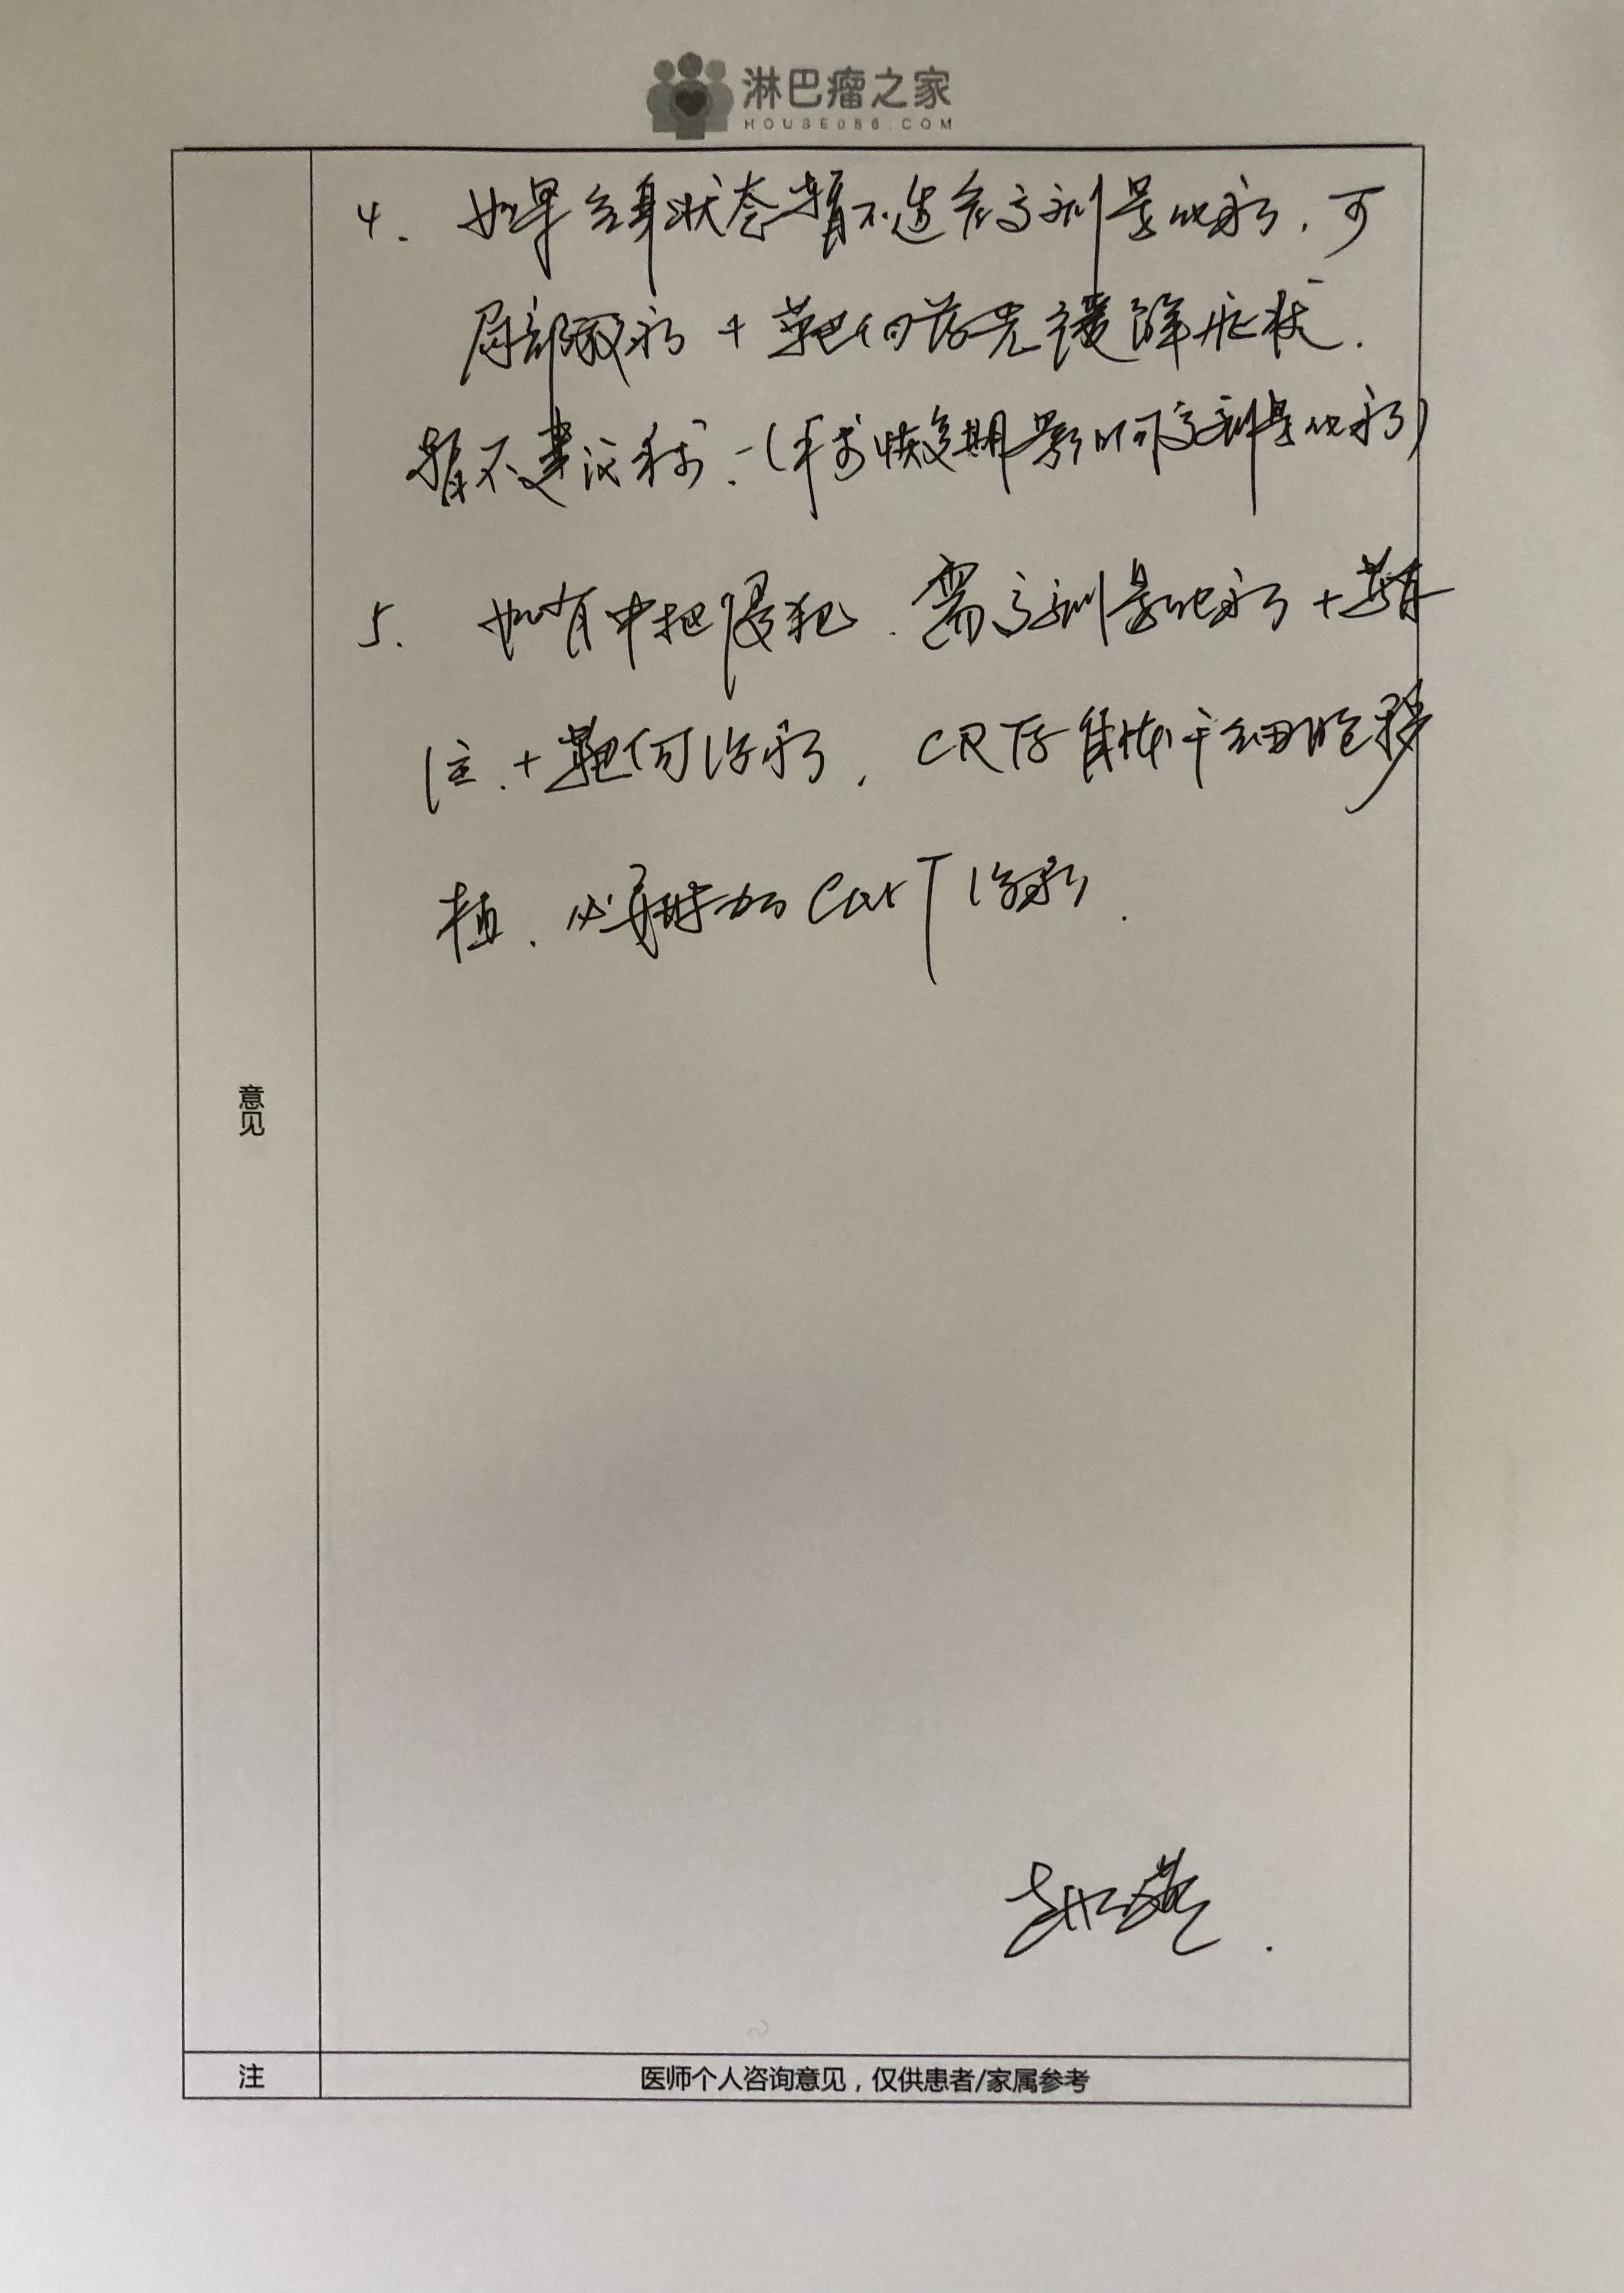 淋巴瘤之家
HOUSE086.COM
4. 如果全身状态暂不适合高剂量化疗,可
局部放疗 + 靶向药先缓解症状.
暂不建议手术.(手术恢复期影响高剂量化疗)
5. 如有中枢侵犯.需高剂量化疗 + 鞘
注.+靶向治疗,CR后自体干细胞移
植.必要时加CarT治疗.
意见
注
医师个人咨询意见,仅供患者/家属参考